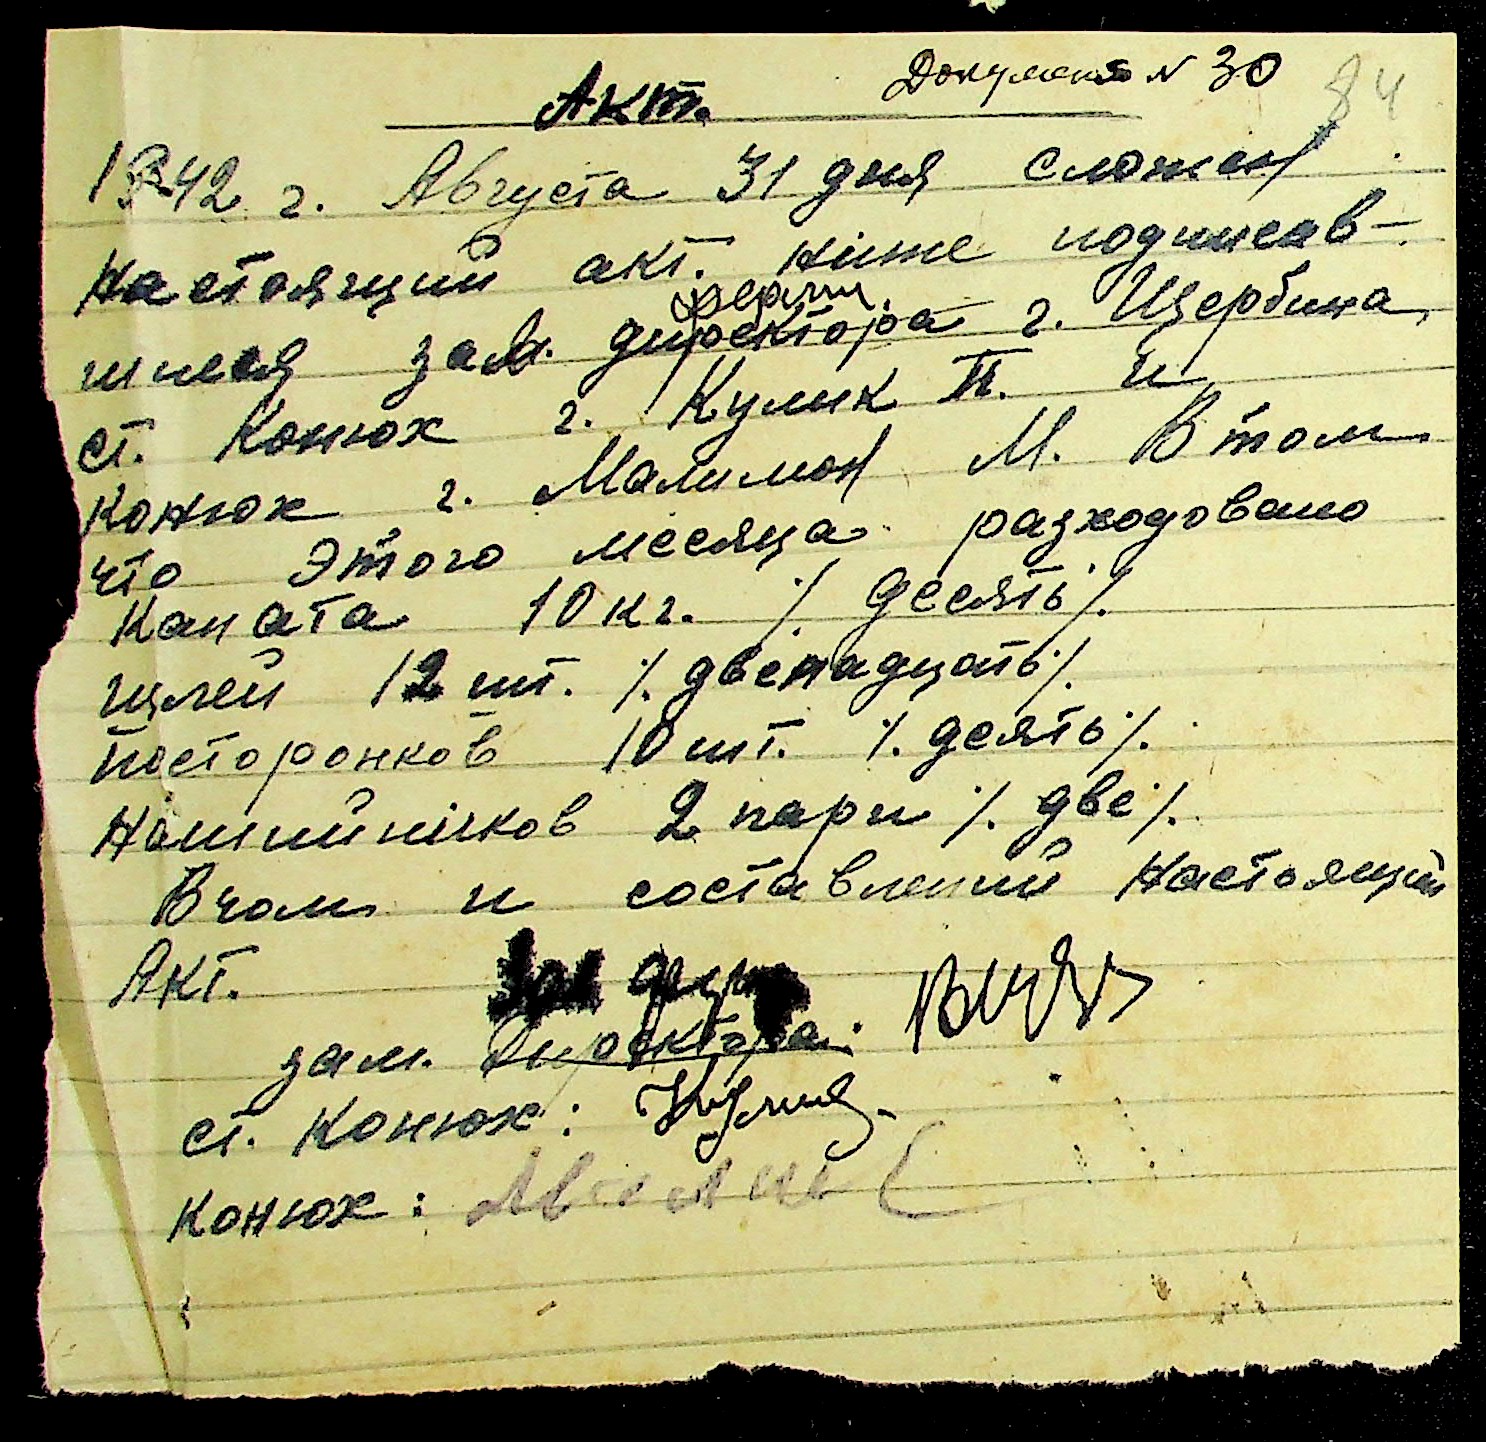 Документ № 30
84
Акт.
1942 г. Августа 31 дня сложен
Настоящий акт. ниже подписав-
шиеся зам. директора г. Щербина,
ферми.
ст. Конюх г. Кулик П. и
конюх г. Малимон М. В том
что этого месяца разходовано
Каната 10 кг. /. десять /.
щлей 12 шт. /. двенадцать /.
посторонков 10 шт. /. десять /.
Нашийничков 2 пари /. две /.
В чом и составлений настоящий
Акт.
зам. Директора:
ст. Конюх: Кулик
Конюх: